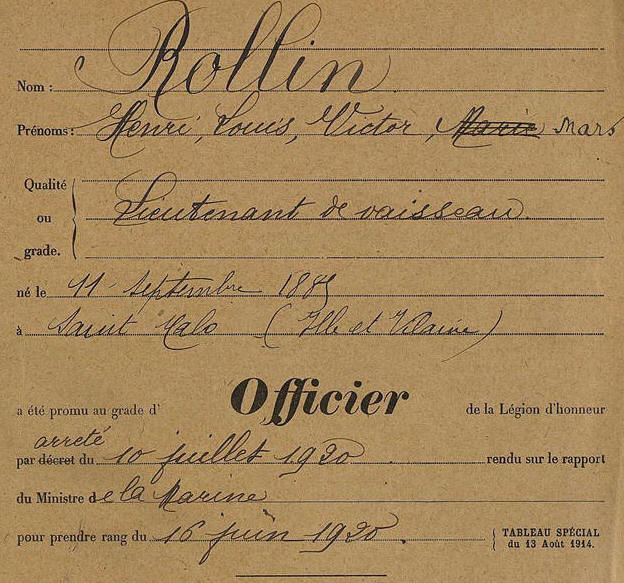 Nom : Rollin
Prénoms : Henri, Louis, Victor, Marie Mars
Qualité
ou
grade.
Lieutenant de vaisseau.
né le 11 septembre 1885
à Saint Malo (Ille et Vilaine)
a été promu au grade d' Officier de la Légion d'honneur
arreté
par décret du 10 juillet 1920 rendu sur le rapport
du Ministre de la Marine
pour prendre rang du 16 juin 1920. TABLEAU SPÉCIAL
du 13 Août 1914.